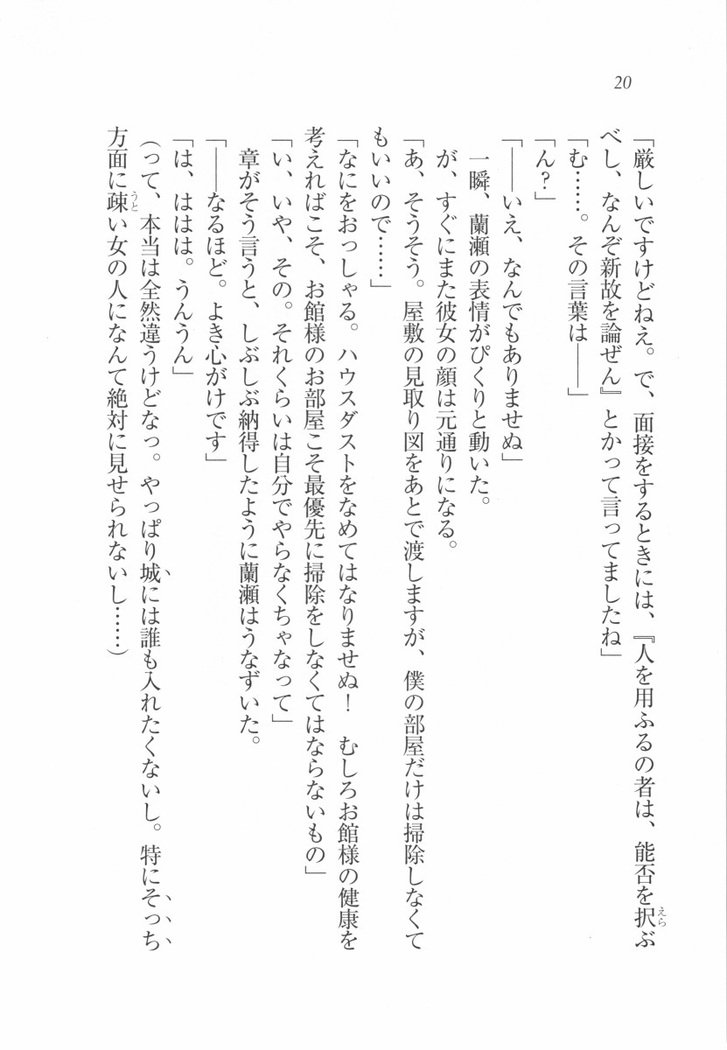 20
「厳しいですけどねえ。で、面接をするときには、『人を用ふるの者は、能否を択ぶ
べし、なんぞ新故を論ぜん』とかって言ってましたね」
「む……。その言葉は――」
「ん?」
「――いえ、なんでもありませぬ」
一瞬、蘭瀬の表情がぴくりと動いた。
が、すぐにまた彼女の顔は元通りになる。
「あ、そうそう。屋敷の見取り図をあとで渡しますが、僕の部屋だけは掃除しなくて
もいいので……」
「なにをおっしゃる。ハウスダストをなめてはなりませぬ! むしろお館様の健康を
考えればこそ、お館様のお部屋こそ最優先に掃除をしなくてはならないもの」
「い、いや、その。それくらいは自分でやらなくちゃなって」
章がそう言うと、しぶしぶ納得したように蘭瀬はうなずいた。
「――なるほど。よき心がけです」
「は、ははは。うんうん」
(って、本当は全然違うけどなっ。やっぱり城には誰も入れたくないし。特にそっち
方面に疎い女の人になんて絶対に見せられないし……)